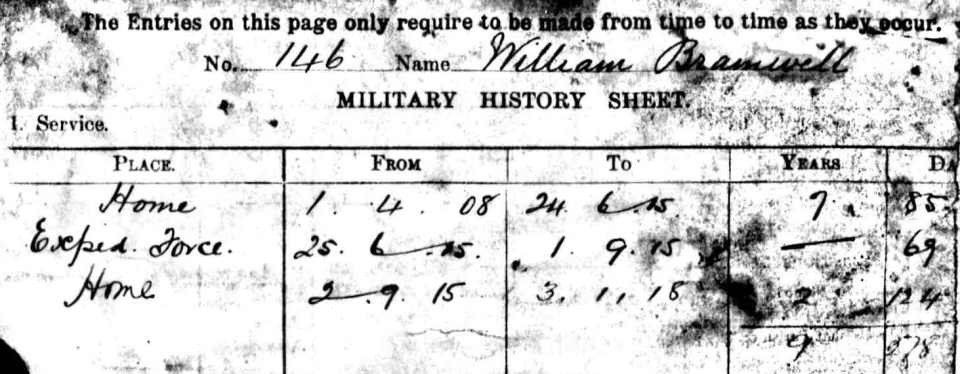 The Entries on this page only require to be made from time to time as they occur.
No. 146 Name William Bramwell
MILITARY HISTORY SHEET.
1. Service.
PLACE. FROM TO YEARS DA
Home 1. 4. 08 24. 6. 15. 7 85
Exped. Force. 25. 6. 15. 1. 9. 15 — 69
Home 2. 9. 15 3. 1. 18 2 124
9 278